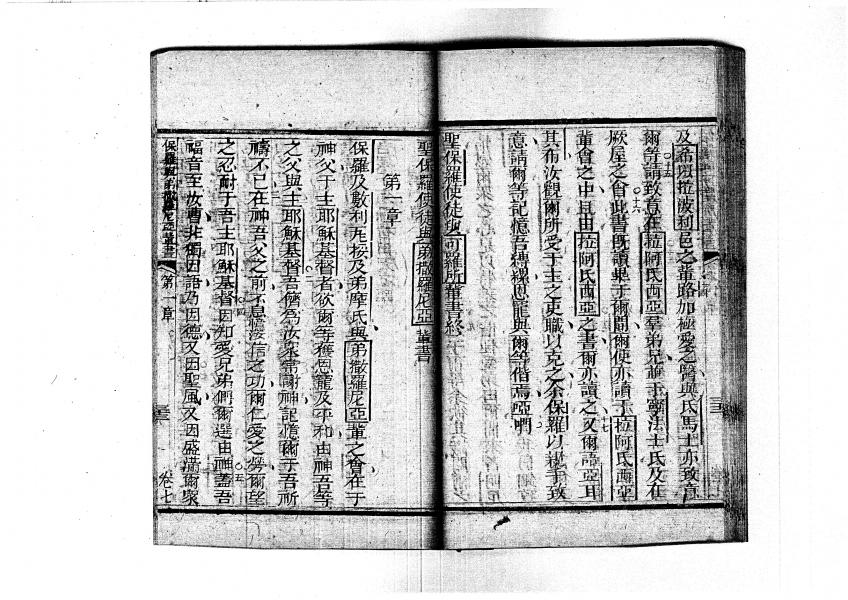 及希拉波利邑之輩路加極愛之醫與氐馬士亦致意
爾等請致意在拉阿氐西亞羣弟兄並于寧法士氐及在
厥屋之會此書既讀畢于爾間爾使亦讀于拉阿氐西亞
輩會之中且由拉阿氐西亞之書爾亦讀之又爾語亞耳
其布汝觀爾所受于主之吏職以克之余保羅以親手致
意請爾等記憶吾縛縲恩寵與爾等偕焉亞們
聖保羅使徒與可羅所輩書終
聖保羅使徒與弟撒羅尼亞輩書
第一章
保羅及數利瓦挼及弟摩氐與弟撒羅尼亞輩之會在于
神父于主耶穌基督者欲爾等獲恩寵及平和由神吾等
之父與主耶穌基督吾儕為汝眾常謝神記憶爾于吾所
禱不已在神吾父之前不息懷信之功爾仁愛之勞爾望
之忍耐于吾主耶穌基督因知愛兄弟們爾選由神蓋吾
福音至汝輩非獨因語乃因德又因聖風又因盛滿爾眾
第一章
卷七